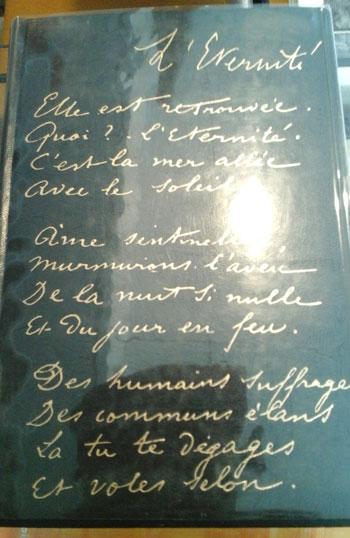 L'Eternité
Elle est retrouvée.
Quoi ? L'Eternité.
C'est la mer allée
Avec le soleil
Ame sentinelle
murmurons l'aveu
De la nuit si nulle
Et du jour en feu.
Des humains suffrages
Des communs élans
La tu te dégages
Et voles selon.